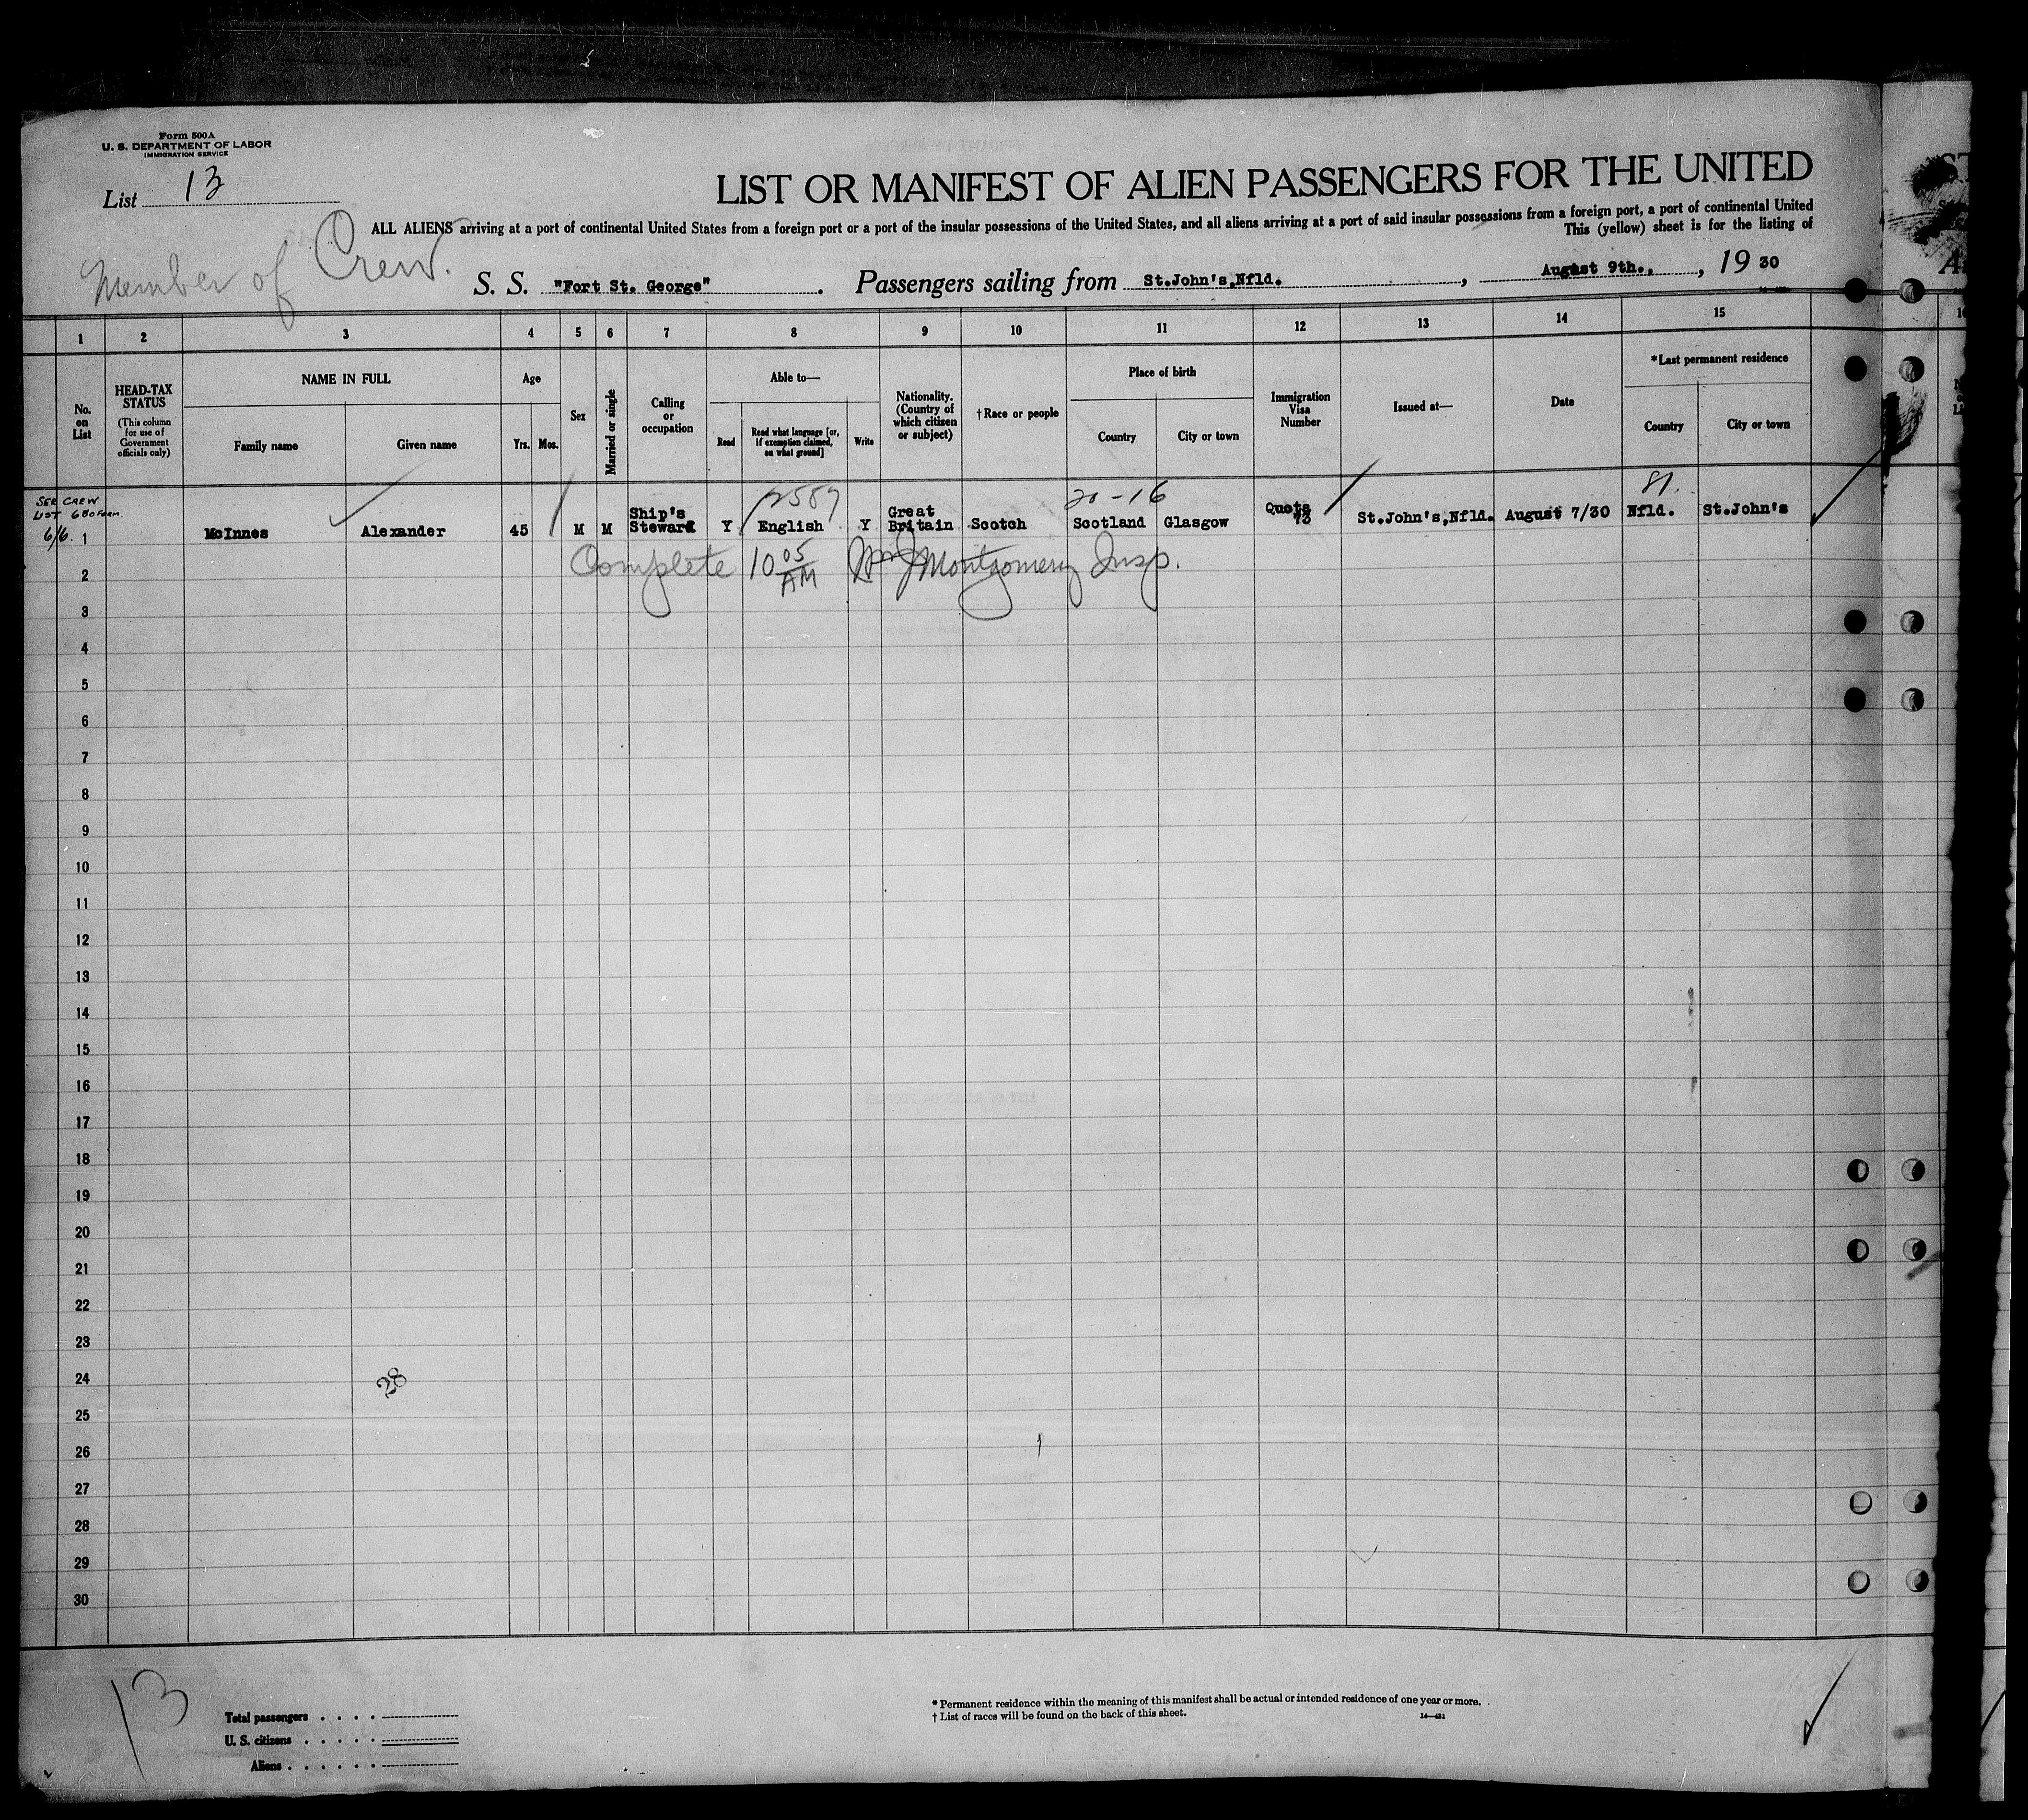 Form 500A
U. S. DEPARTMENT OF LABOR
IMMIGRATION SERVICE
List 13
LIST OR MANIFEST OF ALIEN PASSENGERS FOR THE UNITED
ALL ALIENS arriving at a port of continental United States from a foreign port or a port of the insular possessions of the United States, and all aliens arriving at a port of said insular possessions from a foreign port, a port of continental United
This (yellow) sheet is for the listing of
Member of Crew.
S. S. "Fort St. George". Passengers sailing from St.John's,Nfld., August 9th., , 19 30
1 2 3 4 5 6 7 8 9 10 11 12 13 14 15
No. on List
HEAD-TAX STATUS
(This column for use of Government officials only)
NAME IN FULL
Family name
Given name
Age
Yrs.
Mos.
Sex
Married or single
Calling or occupation
Able to—
Read
Read what language [or, if exemption claimed, on what ground]
Write
Nationality. (Country of which citizen or subject)
†Race or people
Place of birth
Country
City or town
Immigration Visa Number
Issued at—
Date
*Last permanent residence
Country
City or town
SEE CREW
LIST 680 Form
6/6.
2589
20-16
81.
1 McInnes Alexander 45 M M Ship's Steward Y English Y Great Britain Scotch Scotland Glasgow Quota 73 St.John's,Nfld. August 7/30 Nfld. St.John's
Complete 10 05 AM Wm J Montgomery Insp.
2
3
4
5
6
7
8
9
10
11
12
13
14
15
16
17
18
19
20
21
22
23
24
28
25
26
27
28
29
30
13
Total passengers
U. S. citizens
Aliens
* Permanent residence within the meaning of this manifest shall be actual or intended residence of one year or more.
† List of races will be found on the back of this sheet.
14—431